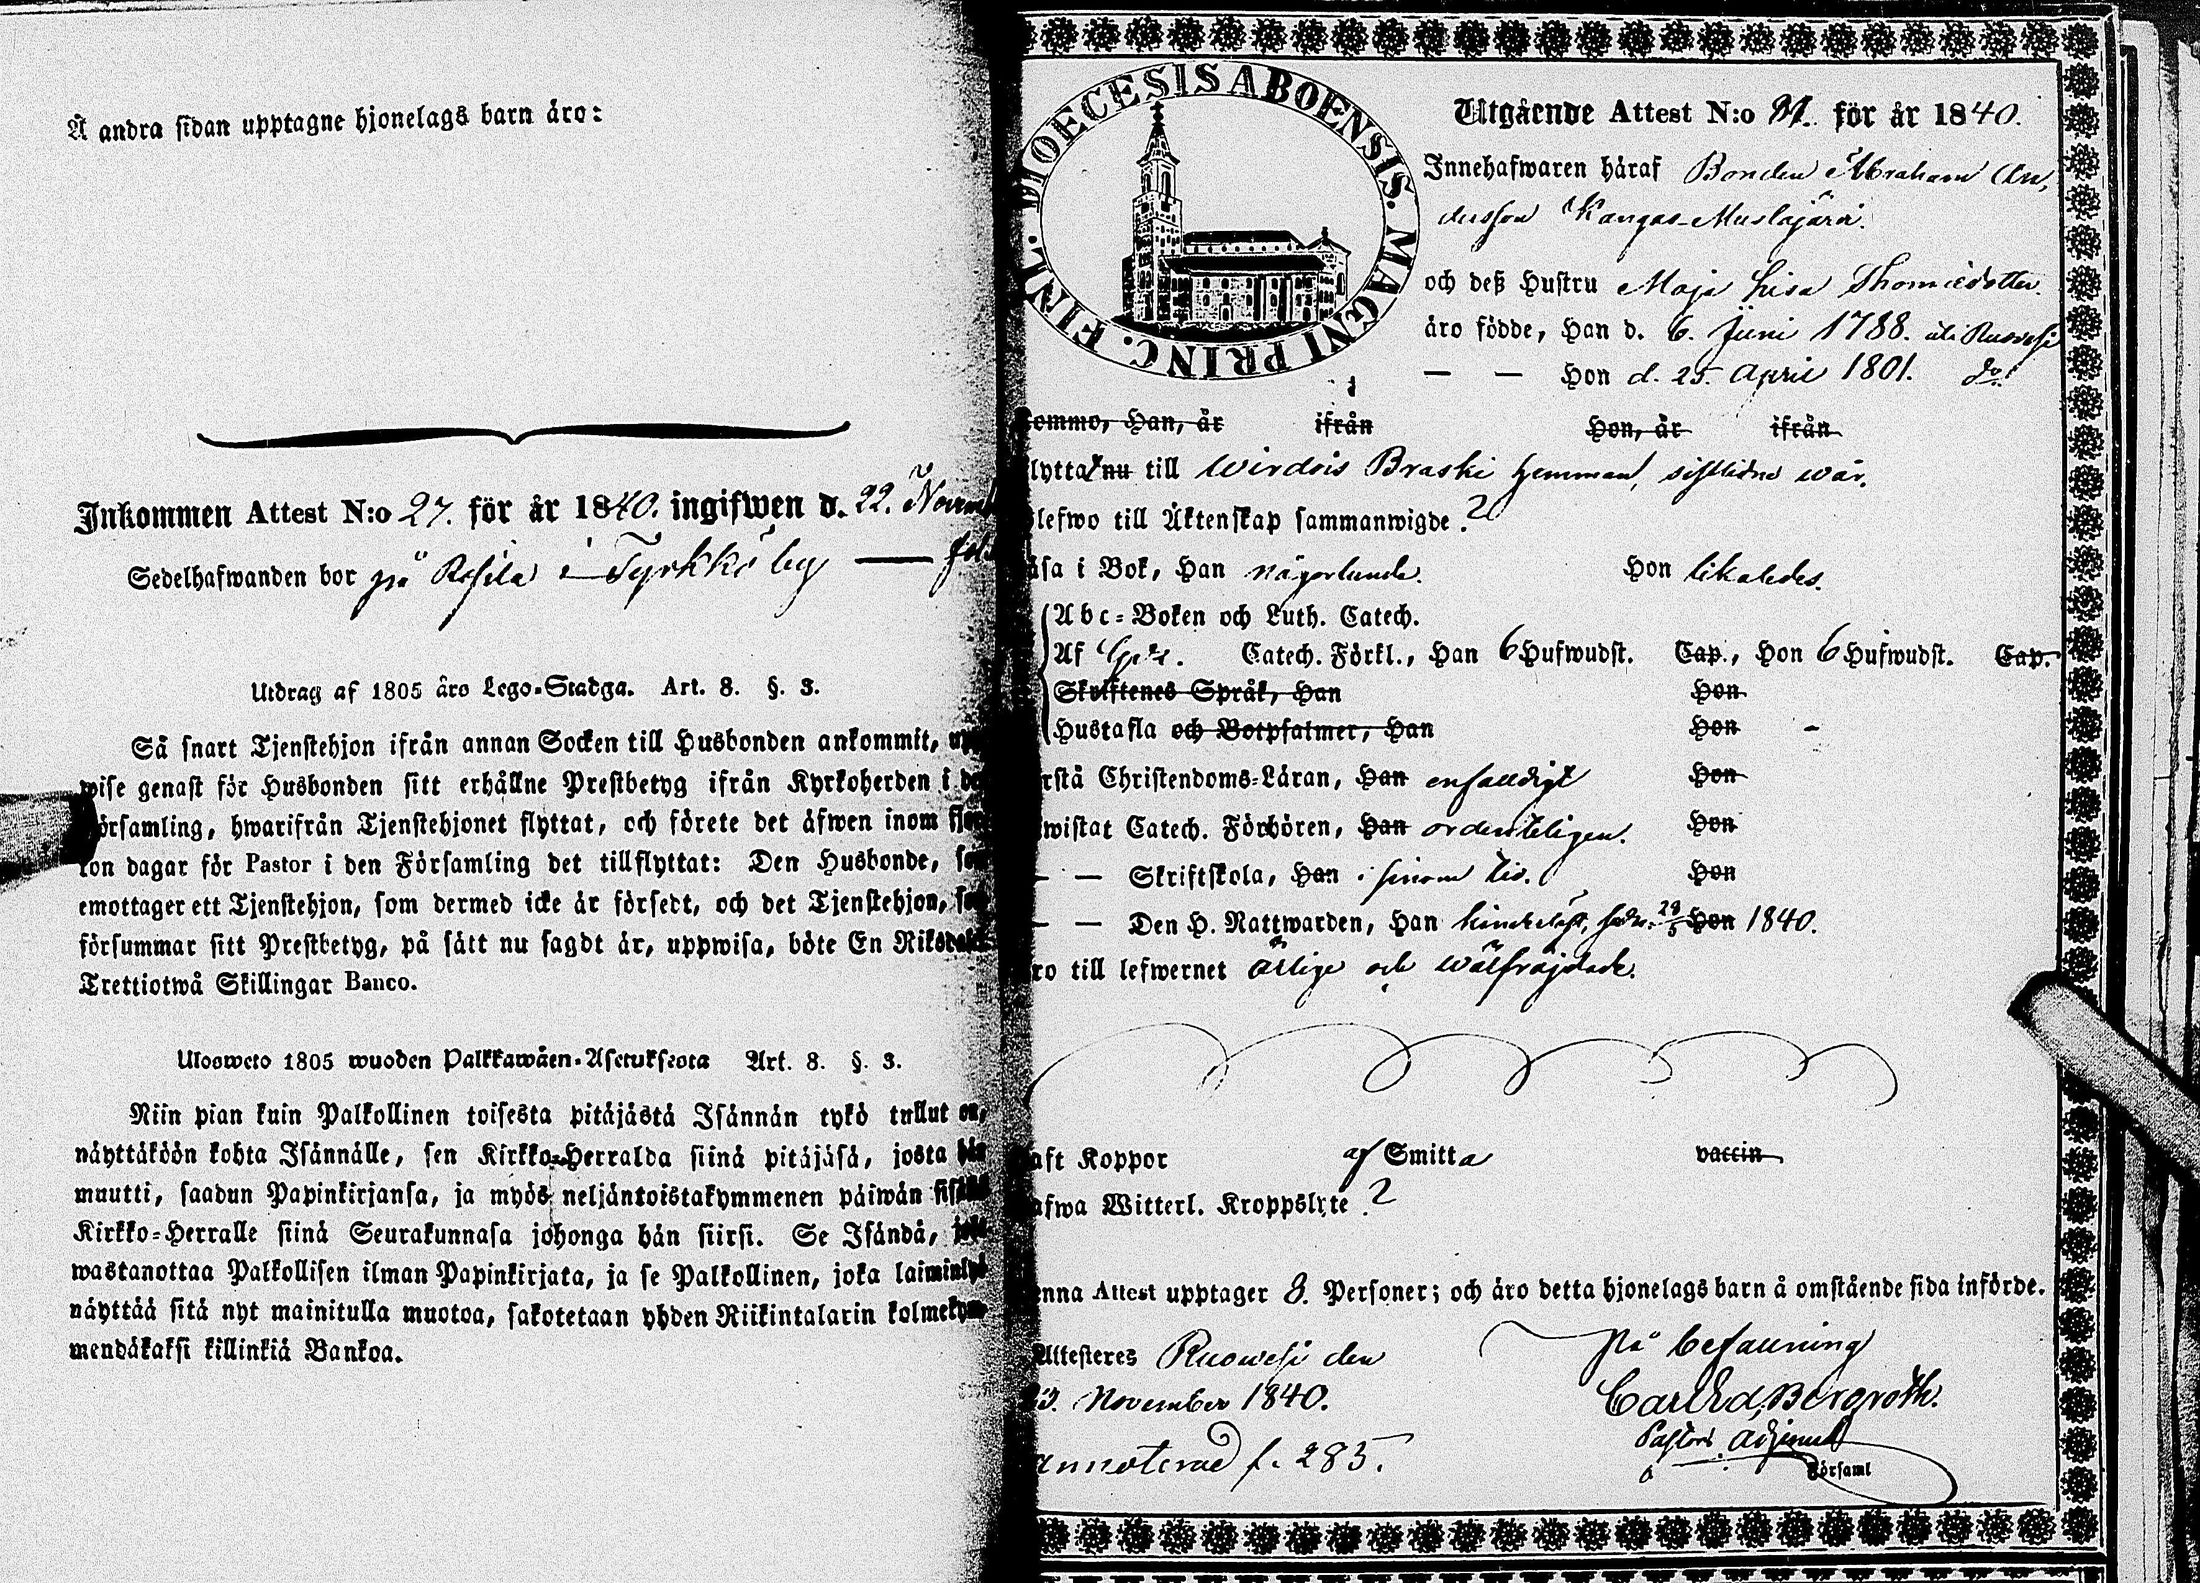 Å andra sidan upptagne hjonelags barn äro:
Inkommen Attest N:o 27. för år 1840. ingifwen d. 22. Novem
Sedelhafwanden bor på i Tyrkkö by — fol.
Utdrag af 1805 års Lego-Stadga. Art. 8. §. 3.
Så snart Tjenstehjon ifrån annan Socken till Husbonden ankommit, upp
wise genast för Husbonden sitt erhållne Prestbetyg ifrån Kyrkoherden i den
Församling, hwarifrån Tjenstehjonet flyttat, och förete det äfwen inom fjor-
ton dagar för Pastor i den Församling det tillflyttat: Den Husbonde, som
emottager ett Tjenstehjon, som dermed icke är försedt, och det Tjenstehjon, som
försummar sitt Prestbetyg, på sätt nu sagdt är, uppwisa, böte En Riksdaler
Trettiotwå Skillingar Banco.
Ulosweto 1805 wuoden Palkkawäen-Asetuksesta Art. 8. §. 3.
Niin pian kuin Palkollinen toisesta pitäjästä Isännän tykö tullut on,
näyttäköön kohta Isännälle, sen Kirkko-Herralda siinä pitäjäsä, josta hän
muutti, saadun Papinkirjansa, ja myös neljäntoistakymmenen päiwän sisällä
Kirkko-Herralle siinä Seurakunnasa johonga hän siirsi. Se Isändä, joka
wastanottaa Palkollisen ilman Papinkirjata, ja se Palkollinen, joka laiminlyö
näyttää sitä nyt mainitulla muotoa, sakotetaan yhden Riikintalarin kolmekym-
mendäkaksi killinkiä Bankoa.
DIOECESIS ABOENSIS. MAGNI PRINC. FINL.
Utgående Attest N:o 91. för år 1840.
Innehafwaren häraf Bonden Abraham An,
dersson Kangas-Muslajärvi.
och deß Hustru Maja Lisa Thomædotter.
äro födde, Han d. 6. Juni 1788. uti Ruovesi
— — Hon d. 25. April 1801. do.
ommo, Han, år ifrån Hon, år ifrån
lytta nu till Wirdois Braski hemman, sistlidne wår.
lefwo till Äktenskap sammanwigde. 2
äsa i Bok, Han någorlunda. Hon likaledes.
Abc-Boken och Luth. Catech.
Af Catech. Förkl., Han 6 Hufwudst. Cap., Hon 6 Hufwudst. Cap.
Skriftenes Språk, Han Hon
Hustafla och Botpsalmer, Han Hon
rstå Christendoms-Läran, Han enfalldigt Hon
wistat Catech. Förhören, Han ordenteligen. Hon
— — Skriftskola, Han i sinom tid. Hon
— — Den H. Nattwarden, Han sedn. 28/5 Hon 1840.
ro till lefwernet ärlige och wälfräjdade.
aft Koppor af Smitta vaccin
afwa Witterl. Kroppslyte. 2
enna Attest upptager 8. Personer; och äro detta hjonelags barn å omstående sida införde.
Attesteres Ruowesi den
November 1840.
på befallning
Carl Ed. Bergroth.
Pastors Adjunct
Församl
annoterad f. 285.